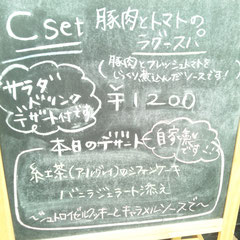 C set
豚肉とトマトの。
ラグースパ
(豚肉とフレッシュトマトを
じっくり煮込んだソースです!)
サラダ
ドリンク
デザート付です!
¥1200
本日のデザート
自家製です!!
紅茶(アールグレイ)のシフォンケーキ
バニラジェラート添え
〜シュトロイゼルクッキーとキャラメルソースで〜